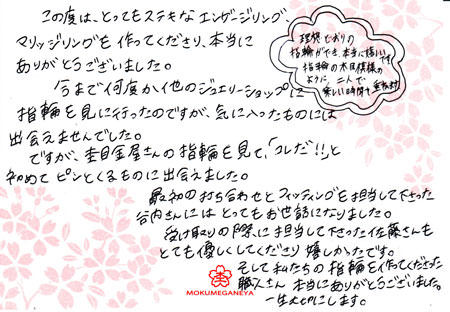 この度は、とってもステキなエンゲージリング、
マリッジリングを作ってくださり、本当に
ありがとうございました。
今まで何度か他のジュエリーショップに
指輪を見に行ったのですが、気に入ったものには
出会えませんでした。
ですが、杢目金屋さんの指輪を見て、「コレだ!!」と
初めてピンとくるものに出会えました。
最初の打ち合わせとフィッティングを担当して下さった
谷内さんにはとってもお世話になりました。
受け取りの際に担当して下さった佐藤さんも
とても優しくしてくださり嬉しかったです。
そして私たちの指輪を作ってくださった
職人さん本当にありがとうございました。
一生大切にします。
理想どおりの
指輪ができ、本当に嬉しいです
指輪の木目模様の
ように、二人で
楽しい時間を重ね
MOKUMEGANEYA